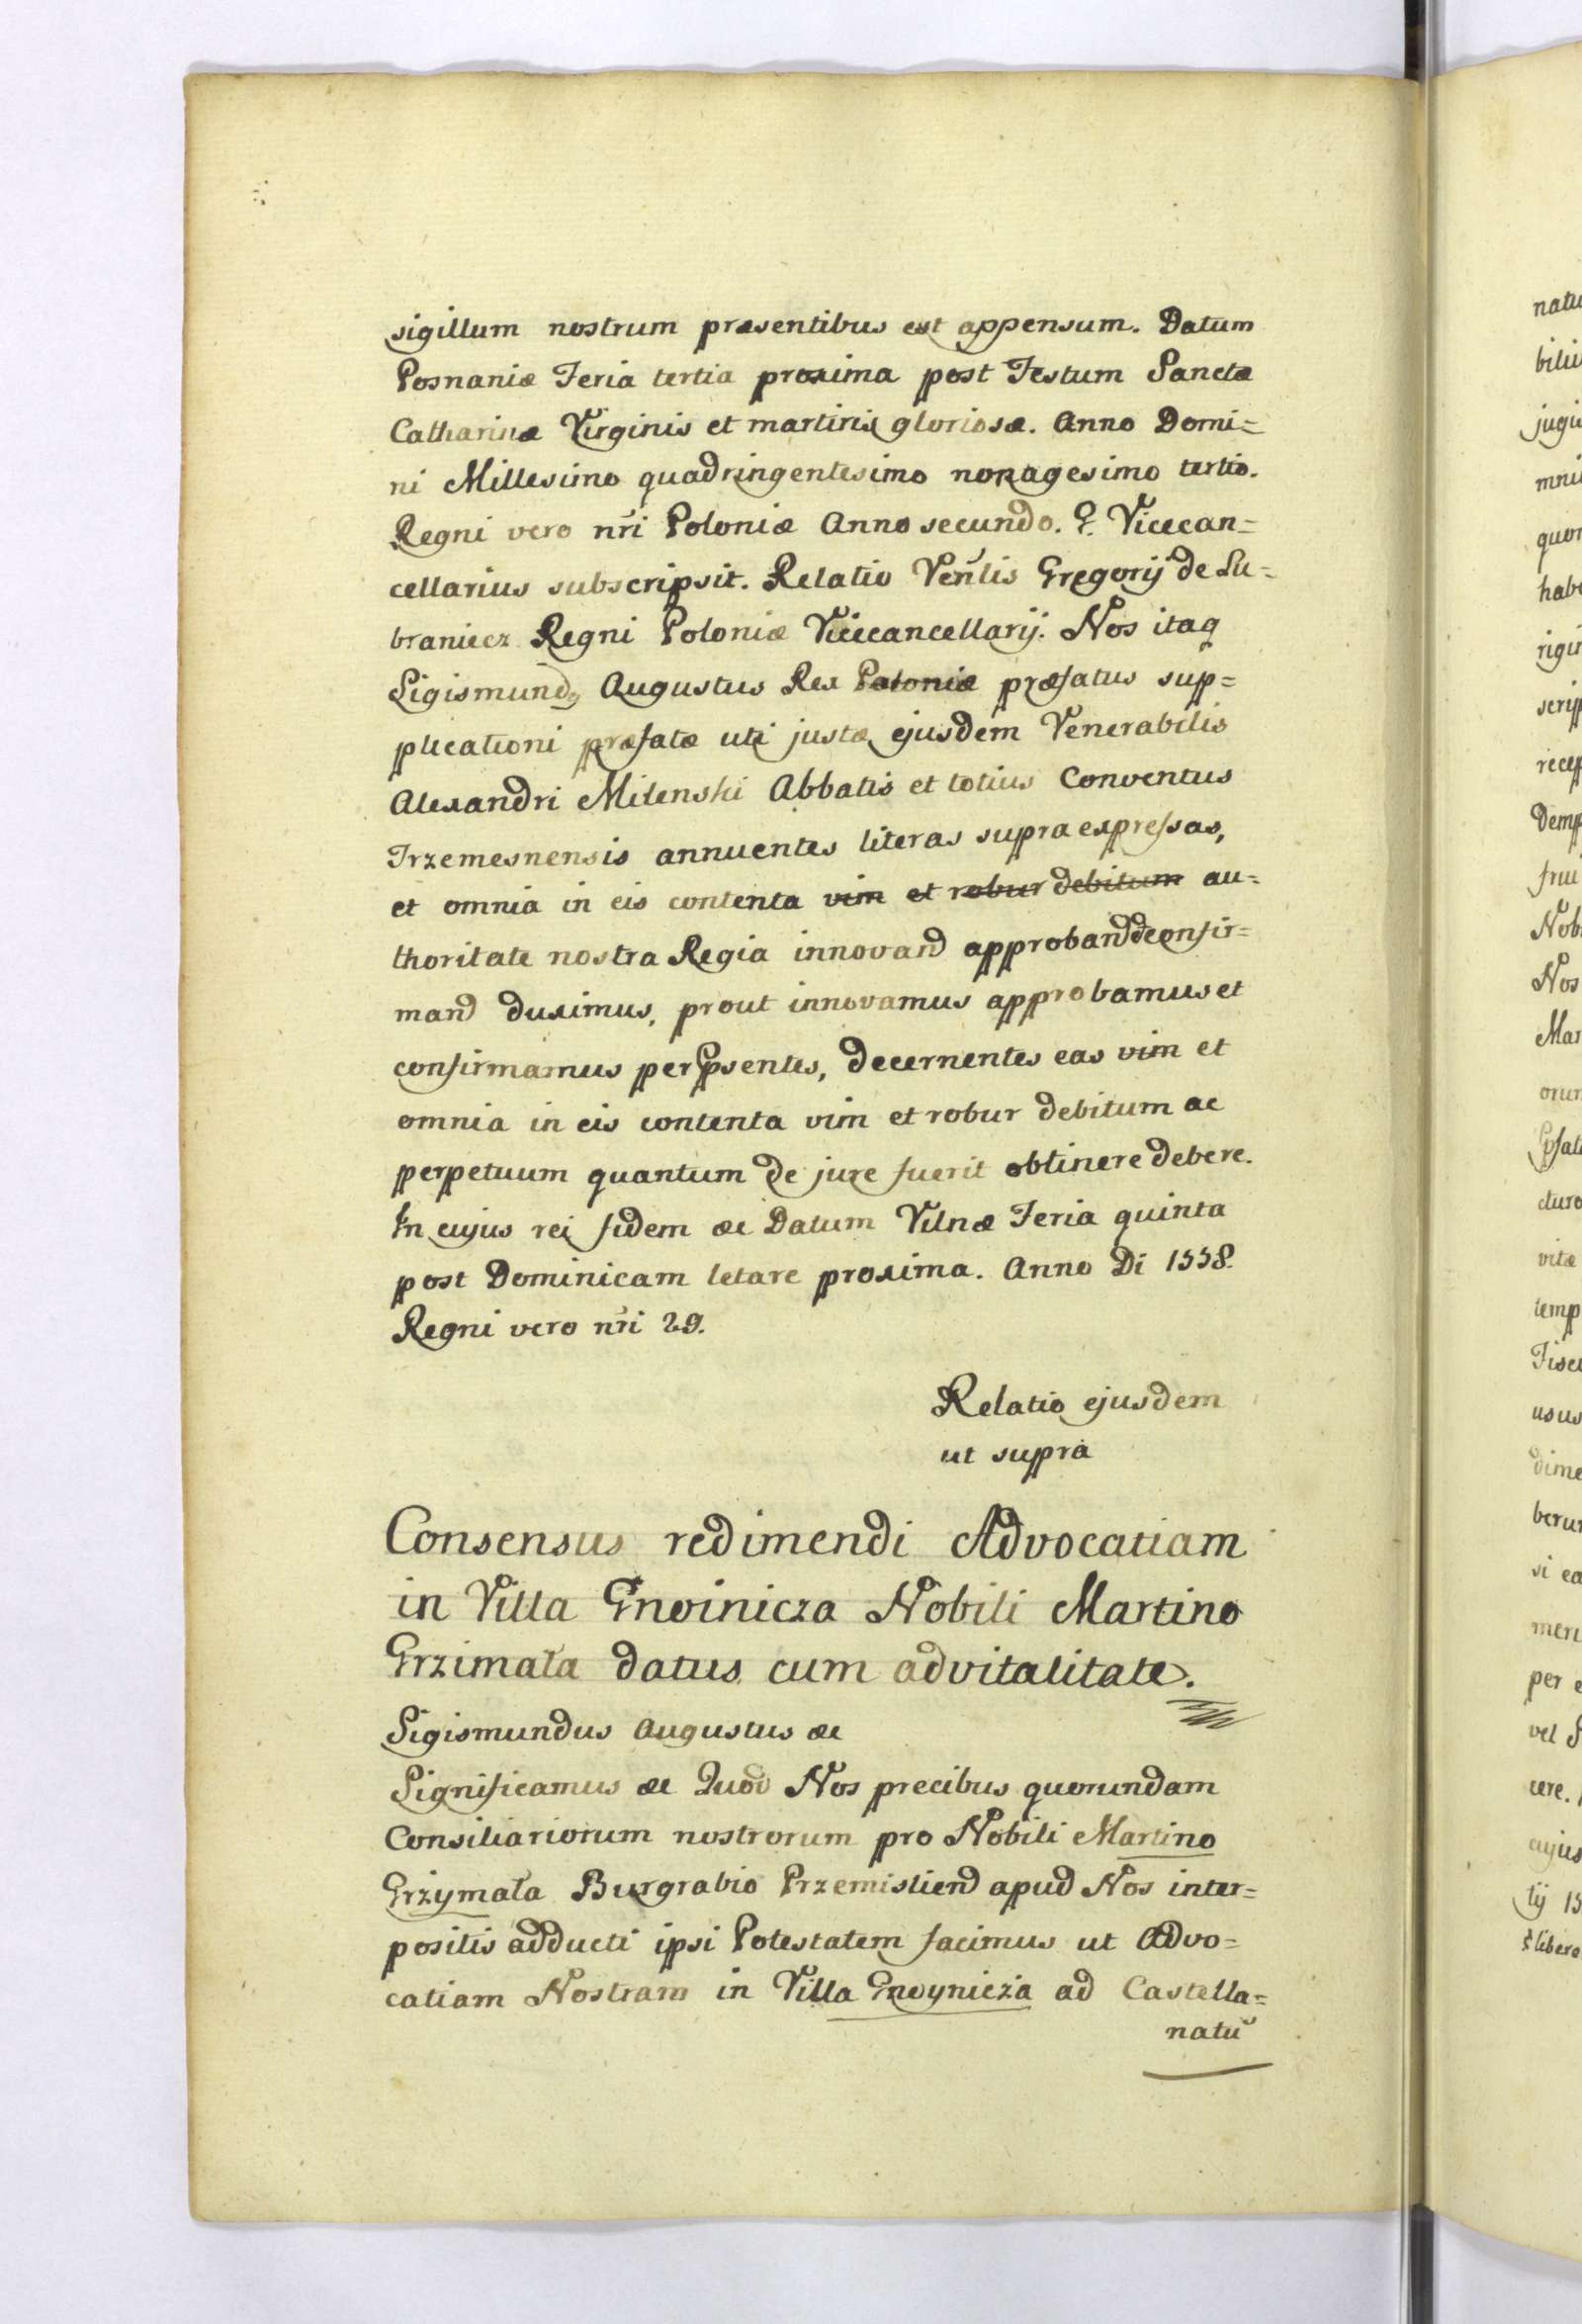 sigillum nostrum præsentibus est appensum. Datum
Posnaniæ Feria tertia proxima post Festum Sanctæ
Catharinæ Virginis et martiris gloriosæ. Anno Domi=
ni Millesimo quadringentesimo nonagesimo tertio.
Regni vero nr̃i Poloniæ Anno secundo. G. Vicecan=
cellarius subscripsit. Relatio Ven̄lis Gregorij de Lu=
braniecz Regni Poloniæ Vicecancellarij. Nos itaq
Sigismund9 Augustus Rex Poloniæ præfatus sup=
plicationi præfatæ uti justæ ejusdem Venerabilis
Alexandri Milenski Abbatis et totius Conventus
Trzemesnensis annuentes literas supra expressas,
et omnia in eis contenta vim et robur debitum au=
thoritate nostra Regia innovand approband & confir=
mand duximus, prout innovamus approbamus et
confirmamus per p̃sentes, decernentes eas vim et
omnia in eis contenta vim et robur debitum ac
perpetuum quantum de jure fuerit obtinere debere.
In cujus rei fidem &c Datum Vilnæ Feria quinta
post Dominicam letare proxima. Anno Di 1558.
Regni vero nr̃i 29.
Relatio ejusdem
ut supra
Consensus redimendi Advocatiam
in Villa Gnoinicza Nobili Martino
Grzimała datus cum advitalitate.
Sigismundus Augustus &c
Significamus &c Quod Nos precibus quorundam
Consiliariorum nostrorum pro Nobili Martino
Grzymała Burgrabio Przemisliend apud Nos inter=
positis adducti ipsi Potestatem facimus ut Advo=
catiam Nostram in Villa Gnoynicza ad Castella=
natū